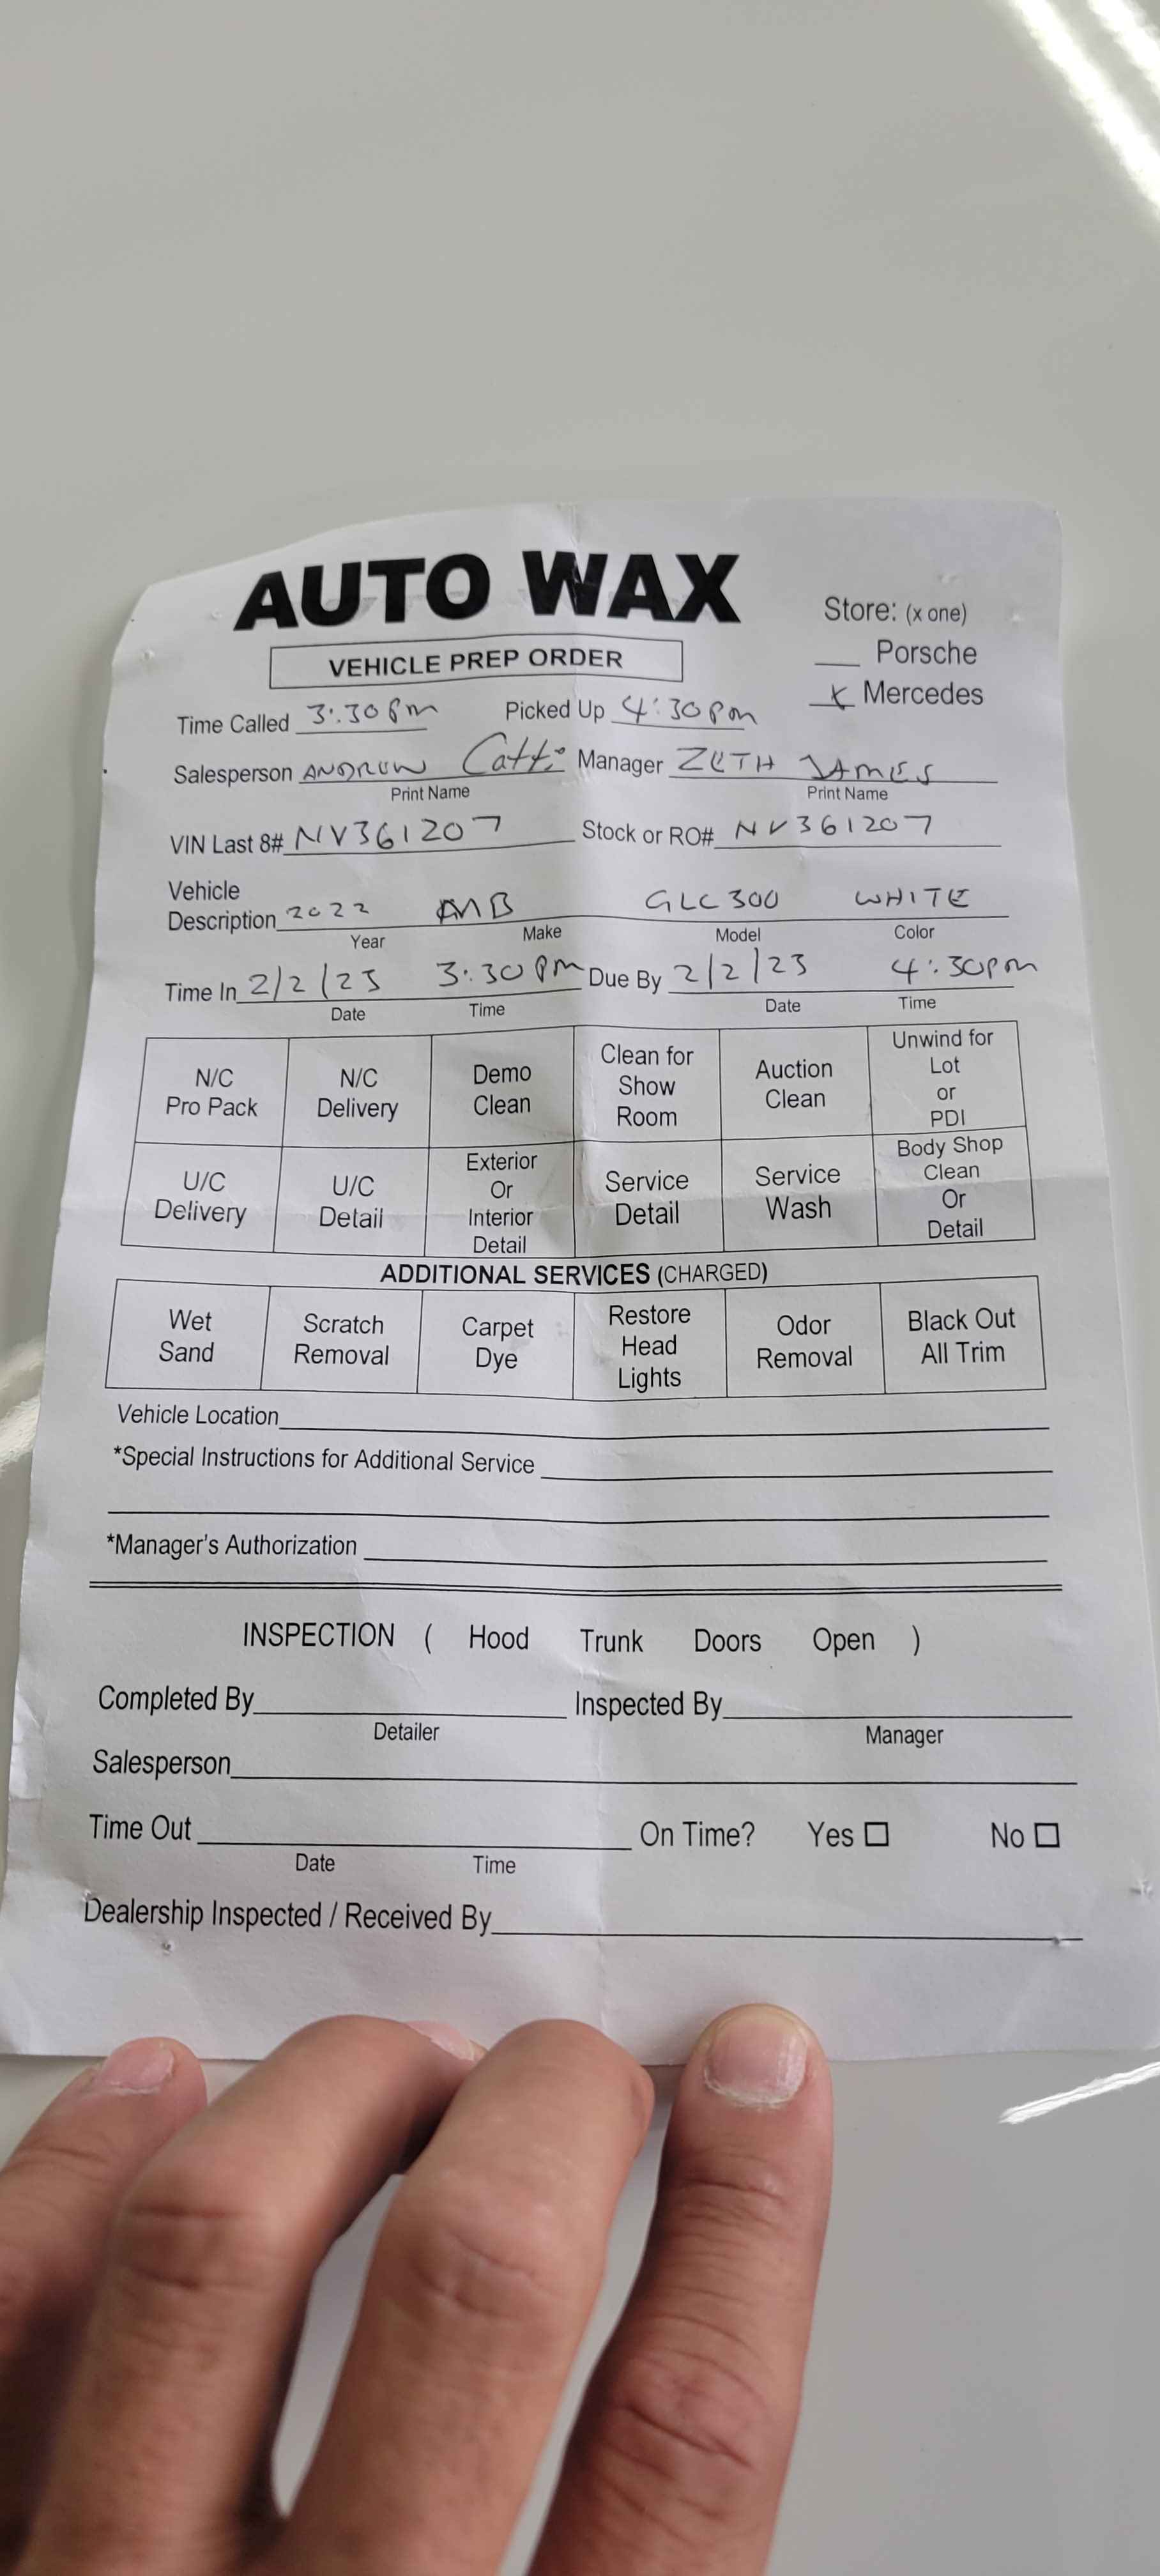 AUTO WAX
Store: (x one)
VEHICLE PREP ORDER
___ Porsche
x Mercedes
Time Called 3:30pm Picked Up 4:30pm
Salesperson ANDREW Catti Manager ZETH JAMES
Print Name Print Name
VIN Last 8# NV361207 Stock or RO# NV361207
Vehicle
Description 2022 MB GLC300 WHITE
Year Make Model Color
Time In 2/2/23 3:30pm Due By 2/2/23 4:30pm
Date Time Date Time
N/C Pro Pack
N/C Delivery
Demo Clean
Clean for Show Room
Auction Clean
Unwind for Lot or PDI
U/C Delivery
U/C Detail
Exterior Or Interior Detail
Service Detail
Service Wash
Body Shop Clean Or Detail
ADDITIONAL SERVICES (CHARGED)
Wet Sand
Scratch Removal
Carpet Dye
Restore Head Lights
Odor Removal
Black Out All Trim
Vehicle Location
*Special Instructions for Additional Service
*Manager's Authorization
INSPECTION ( Hood Trunk Doors Open )
Completed By Inspected By
Detailer Manager
Salesperson
Time Out On Time? Yes □ No □
Date Time
Dealership Inspected / Received By